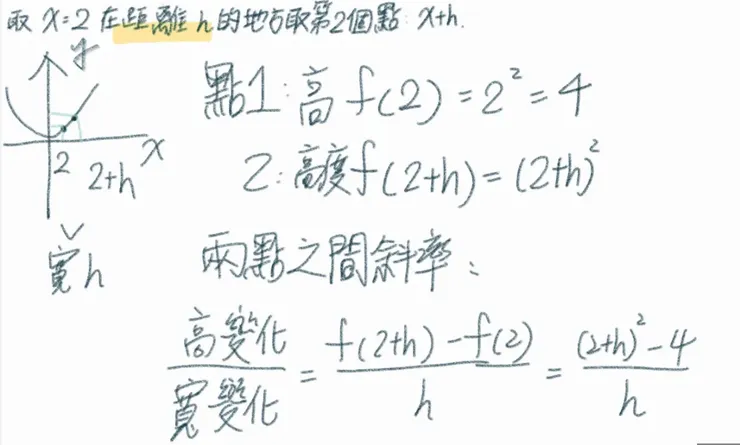 取 x=2 在距離 h 的地方取第2個點: x+h.
y
點1:高 f(2) = 2² = 4
x
2 2+h
2:高度f(2+h) = (2+h)²
寬h
兩點之間斜率:
高變化/寬變化 = (f(2+h) - f(2))/h = ((2+h)² - 4)/h